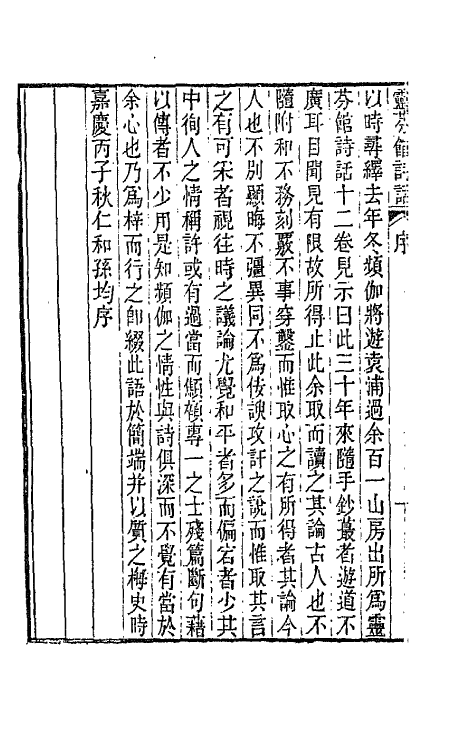 靈芬館詩話 序
以時尋繹去年冬頻伽將遊袁浦過余百一山房出所爲靈
芬館詩話十二卷見示曰此三十年來隨手鈔蕞者遊道不
廣耳目聞見有限故所得止此余取而讀之其論古人也不
隨附和不務刻覈不事穿鑿而惟取心之有所得者其論今
人也不別顯晦不彊異同不爲伎諛攻訐之說而惟取其言
之有可采者視往時之議論尤覺和平者多而偏宕者少其
中徇人之情稱許或有過當而顓頓專一之士殘篇斷句藉
以傳者不少用是知頻伽之情性與詩俱深而不覺有當於
余心也乃爲梓而行之卽綴此語於簡端幷以質之梅史時
嘉慶丙子秋仁和孫均序